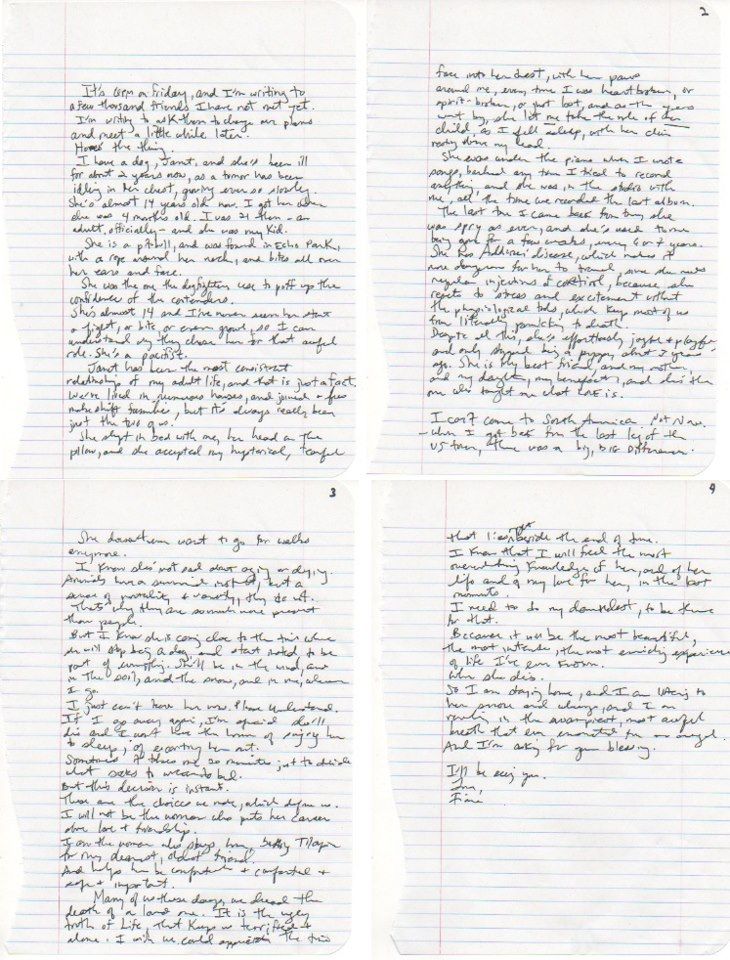 It's 6pm on Friday, and I'm writing to
a few thousand friends I have not met yet.
I'm writing to ask them to change our plans
and meet a little while later.
Here's the thing.
I have a dog, Janet, and she's been ill
for about 2 years now, as a tumor has been
idling in her chest, growing ever so slowly.
She's almost 14 years old now. I got her when
she was 4 months old. I was 21 then – an
adult, officially – and she was my kid.
She is a pitbull, and was found in Echo Park,
with a rope around her neck, and bites all over
her ears and face.
She was the one the dogfighters use to puff up the
confidence of the contenders.
She's almost 14 and I've never seen her start
a fight, or bite, or even growl, so I can
understand why they chose her for that awful
role. She's a pacifist.
Janet has been the most consistent
relationship of my adult life, and that is just a fact.
We've lived in numerous houses, and joined a few
makeshift families, but it's always really been
just the two of us.
She slept in bed with me, her head on the
pillow, and she accepted my hysterical, tearful
2
face into her chest, with her paws
around me, every time I was heartbroken, or
spirit-broken, or just lost, and as the years
went by, she let me take the role of her
child, as I fell asleep, with her chin
resting above my head.
She was under the piano when I wrote
songs, barked any time I tried to record
anything, and she was in the studio with
me, all the time we recorded the last album.
The last time I came back from tour, she
was spry as ever, and she's used to me
being gone for a few weeks, every 6 or 7 years.
She has Addison's disease, which makes it
more dangerous for her to travel, since she needs
regular injections of Cortisol, because she
reacts to stress and excitement without
the physiological tools, which keep most of us
from literally panicking to death.
Despite all this, she's effortlessly joyful & playful,
and only stopped being a puppy about 3 years
ago. She is my best friend, and my mother,
and my daughter, my benefactor, and she's the
one who taught me what love is.
I can't come to South America. Not Now.
– When I got back from the last leg of the
US tour, there was a big, BIG difference.
3
She doesn't even want to go for walks
anymore.
I know she's not sad about aging or dying.
Animals have a survival instinct, but a
sense of mortality & vanity, they do not.
That's why they are so much more present
than people.
But I know she is coming close to the time where
she will stop being a dog and start instead to be
part of everything. She'll be in the wind, and
in the soil, and the snow, and in me, wherever
I go.
I just can't leave her now. Please understand.
If I go away again, I'm afraid she'll
die and I won't have the honor of singing her
to sleep, of escorting her out.
Sometimes it takes me 20 minutes just to decide
what socks to wear to bed.
But this decision is instant.
These are the choices we make, which define us.
I will not be the woman who puts her career
above love & friendship.
I am the woman who stays home, baking Tilapia
for my dearest, oldest friend.
And helps her be comfortable & comforted &
safe & important.
Many of us these days, we dread the
death of a loved one. It is the ugly
truth of Life, that keeps us terrified &
alone. I wish we could appreciate the time
4
that lies right beside the end of time.
I know that I will feel the most
overwhelming knowledge of her, and of her
life and of my love for her, in the last
moments.
I need to do my damnedest, to be there
for that.
Because it will be the most beautiful,
the most intense, the most enriching experience
of life I've ever known.
When she dies.
So I am staying home, and I am listening to
her snore and wheeze, and I am
reveling in the swampiest, most awful
breath that ever emanated from an angel.
And I'm asking for your blessing.
I'll be seeing you.
Love,
Fiona